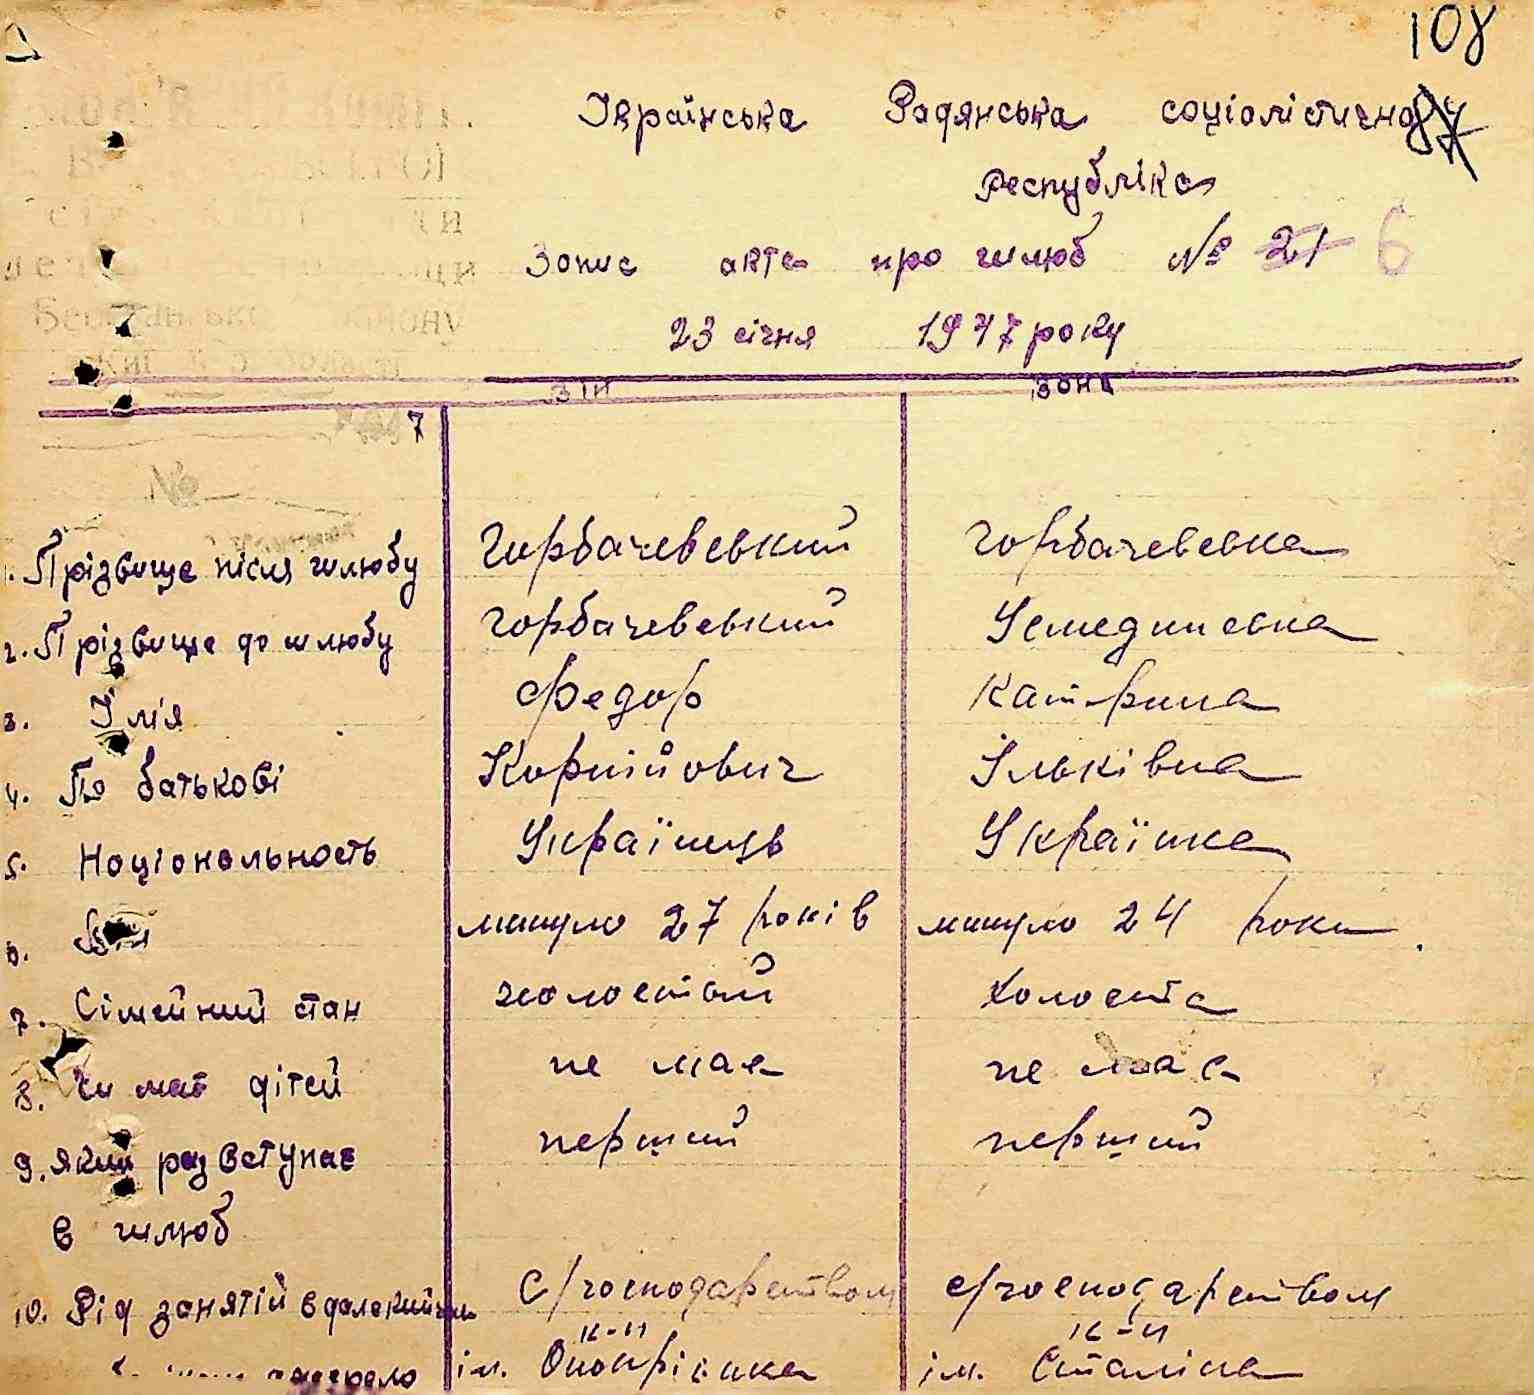 108
Українська Радянська соціалістична 87
республіка
Запис акта про шлюб № 21 6
23 січня 1947 року
Він Вона
7
№
1. Прізвище після шлюбу Горбачевський Горбачевська
2. Прізвище до шлюбу Горбачевський
3. Їм'я Федор Катрина
4. По батькові Корнійович Ільківна
5. Національность Українець Українка
6. Вік минуло 27 років минуло 24 роки.
7. Сімейний стан холостий холоста
8. Чи має дітей не має не має
9. Який раз вступає перший перший
в шлюб
10. Рід занятій в далекий час с/господарством с/господарством
к-п к-п
джерело ім. Сталіна